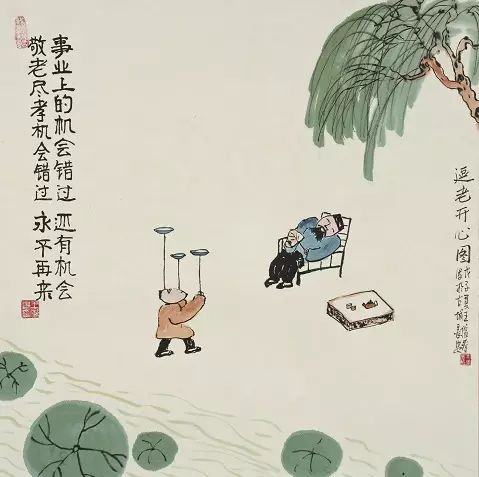 事业上的机会错过 还有机会
敬老尽孝机会错过 永不再来
逗老开心图